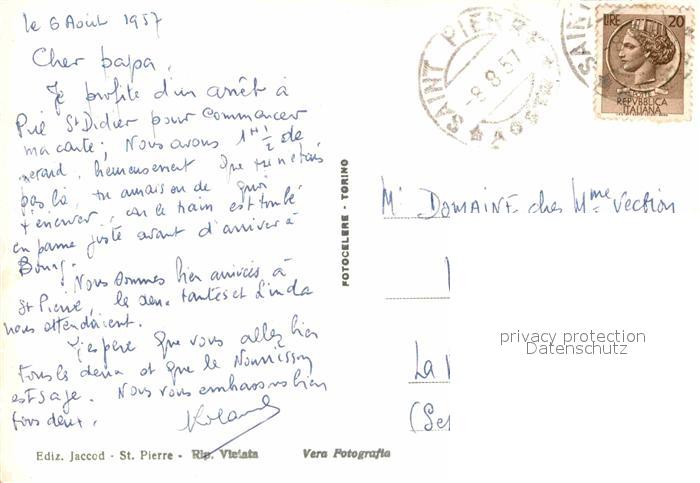 le 6 Août 1957
Cher papa,
Je profite d'un arrêt à
Pré St Didier pour commencer
ma carte; Nous avons 1H 1/2 de
retard, heureusement que tu n'étais
pas là, tu aurais eu de quoi
t'énerver, car le train est tombé
en panne juste avant d'arriver à
Bourg.
Nous sommes bien arrivés à
St Pierre, les deux tantes et Linda
nous attendaient.
J'espère que vous allez bien
tous les deux et que le Nourrisson
est sage. Nous vous embrassons bien
tous deux.
Roland
Ediz. Jaccod - St. Pierre - Rip. Vietata
Vera Fotografia
FOTOCELERE - TORINO
SAINT PIERRE
8.8.57
AOSTA
SAINT
LIRE 20
POSTE
REPVBBLICA
ITALIANA
Mr DOMAINE chez Mme Vection
La
(Sei
privacy protection
Datenschutz